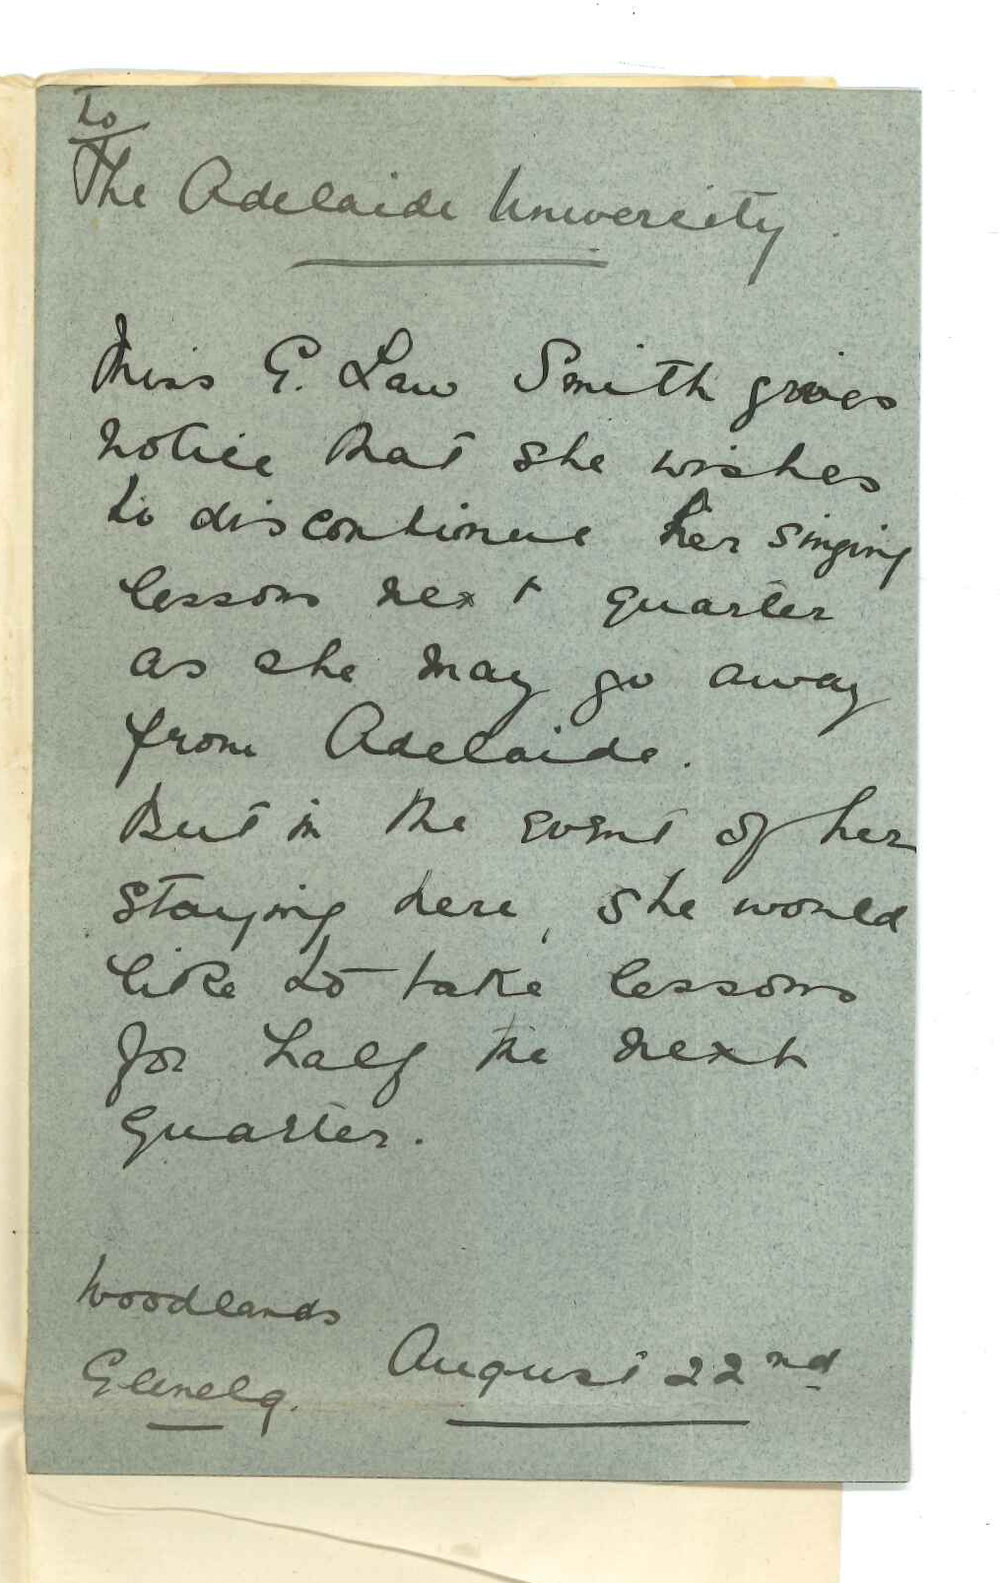 To
The Adelaide University.
Miss G. Law Smith gives
notice that she wishes
to discontinue her singing
lessons next quarter
as she may go away
from Adelaide.
But in the event of her
staying here, she would
like to take lessons
for half the next
quarter.
Woodlands
Glenelg.
August 22nd